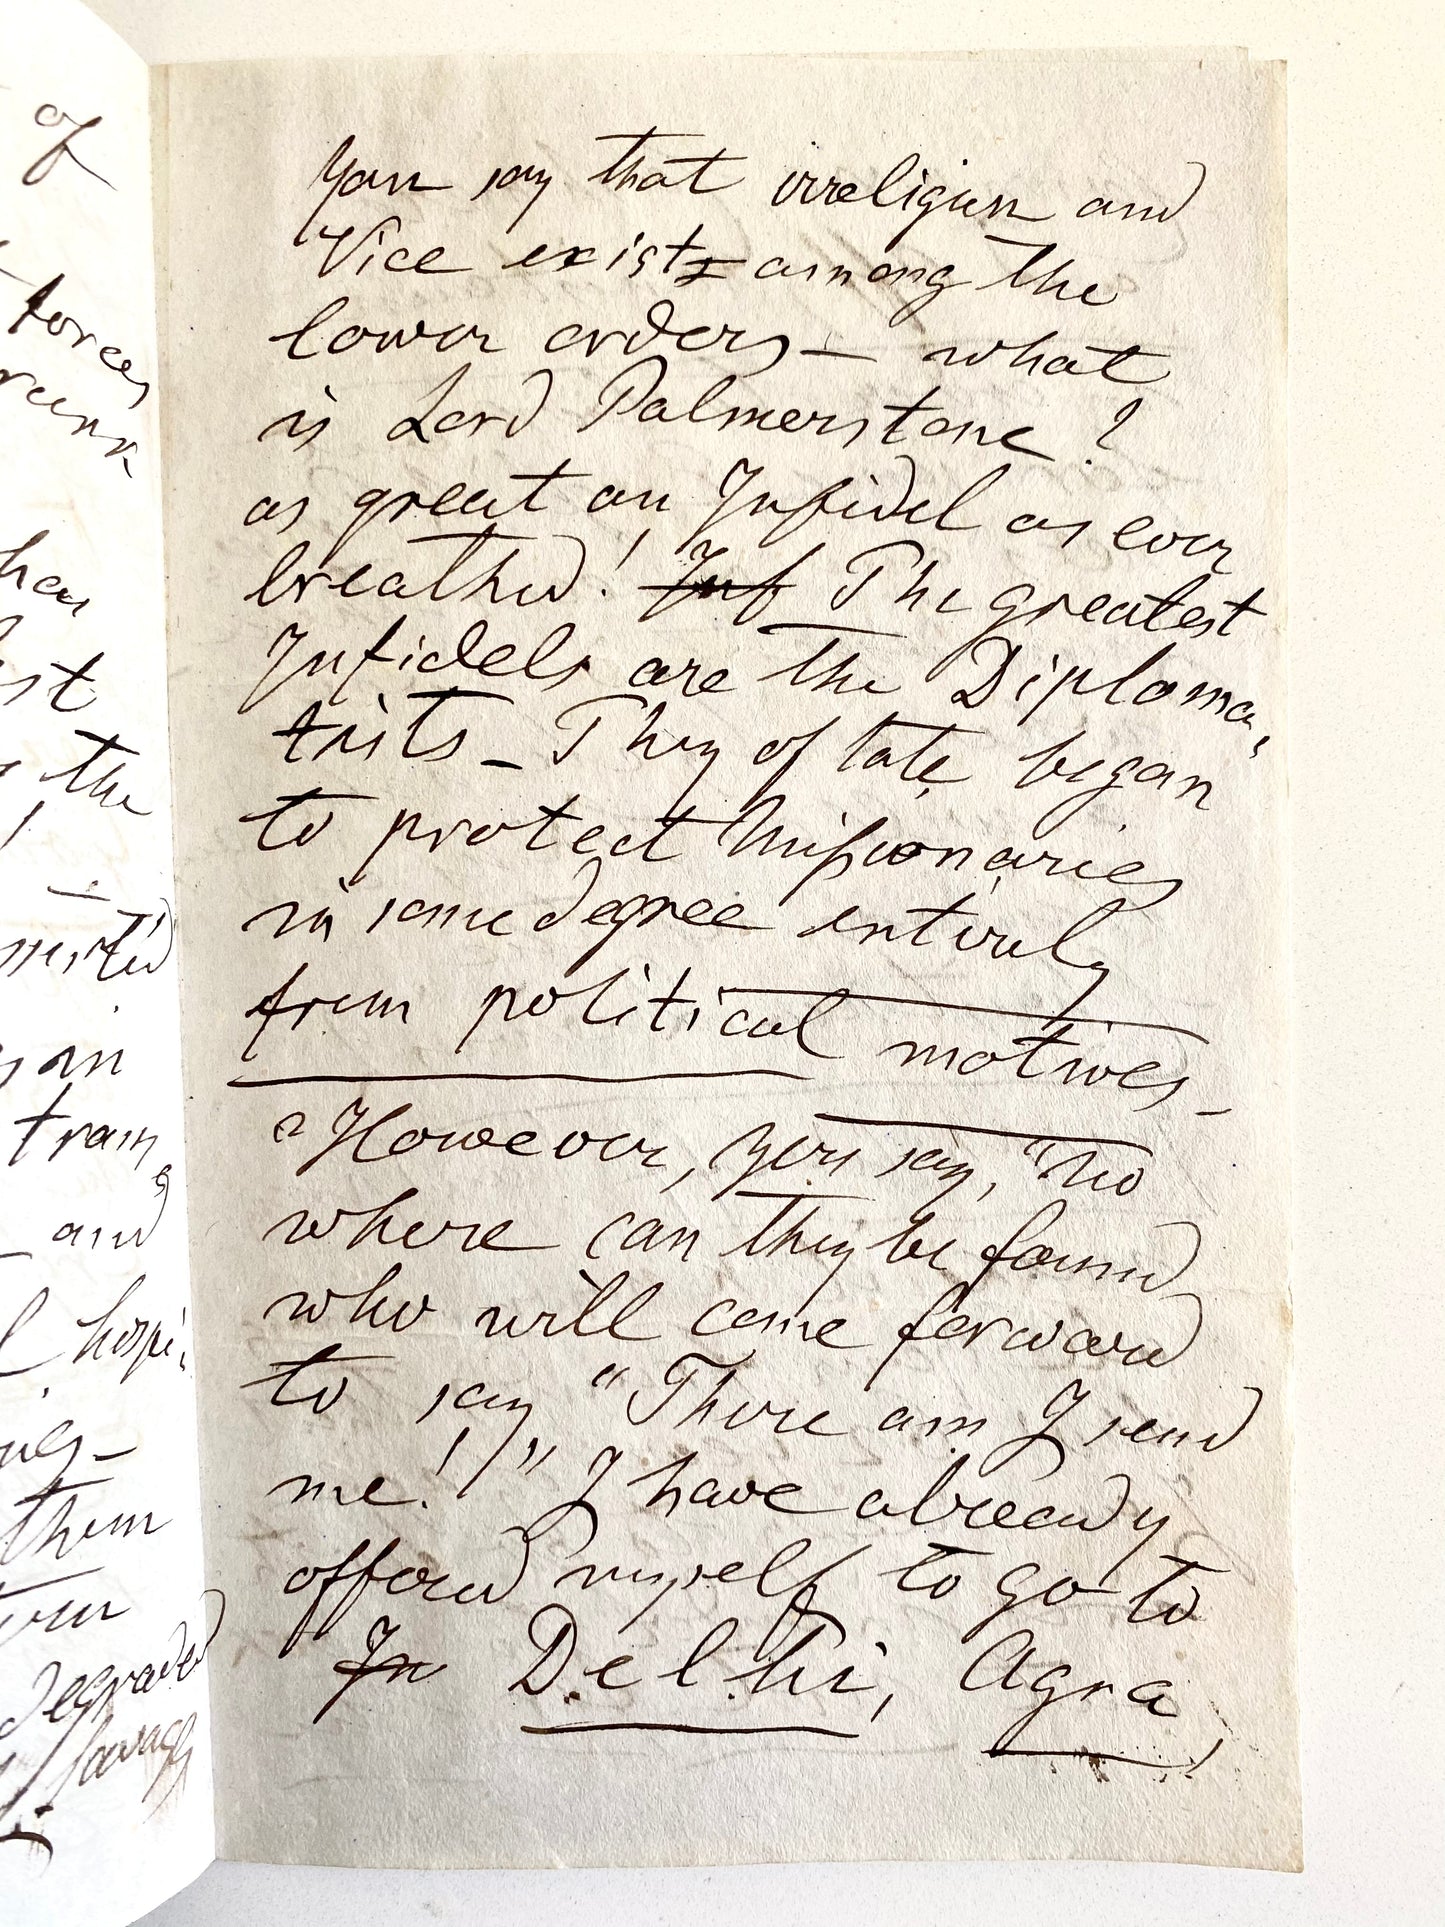 of
forces
hen
st
the
in
train,
and
hospi,
them
degraded
savage
You say that irreligion and
Vice exist among the
lower orders — what
is Lord Palmerstone?
as great an Infidel as ever
breathed! Inf The greatest
Infidels are the Diploma,
tists — They of late began
to protect Missionaries
in some degree entirely
from political motives —
However, you say, "No
where can they be found
who will come forward
to say "There am I send
me!"" I have already
offered myself to go to
In Delhi, Agra,